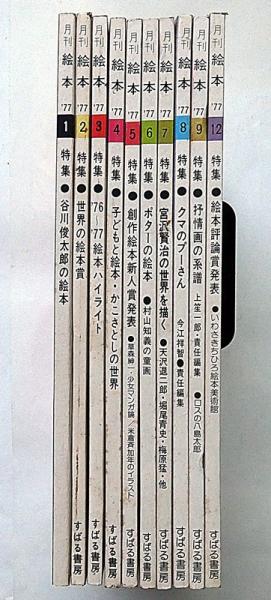 月刊 絵本 '77 1 特集●谷川俊太郎の絵本
月刊 絵本 '77 2 特集●世界の絵本賞 すばる書房
月刊 絵本 '77 3 特集●'76〜'77絵本ハイライト すばる書房
月刊 絵本 '77 4 特集●子どもと絵本・かこさとしの世界 すばる書房
月刊 絵本 '77 5 特集●創作絵本新人賞発表●草森紳一・少女マンガ論/米倉斉加年のイラスト すばる書房
月刊 絵本 '77 6 特集●ポターの絵本●村山知義の童画 すばる書房
月刊 絵本 '77 7 特集●宮沢賢治の世界を描く●天沢退二郎・堀尾青史・梅原猛・他 すばる書房
月刊 絵本 '77 8 特集●クマのプーさん 今江祥智●責任編集 すばる書房
月刊 絵本 '77 9 特集●抒情画の系譜 上笙一郎・責任編集●ロスの八島太郎 すばる書房
月刊 絵本 '77 12 特集●絵本評論賞発表●いわさきちひろ絵本美術館 すばる書房